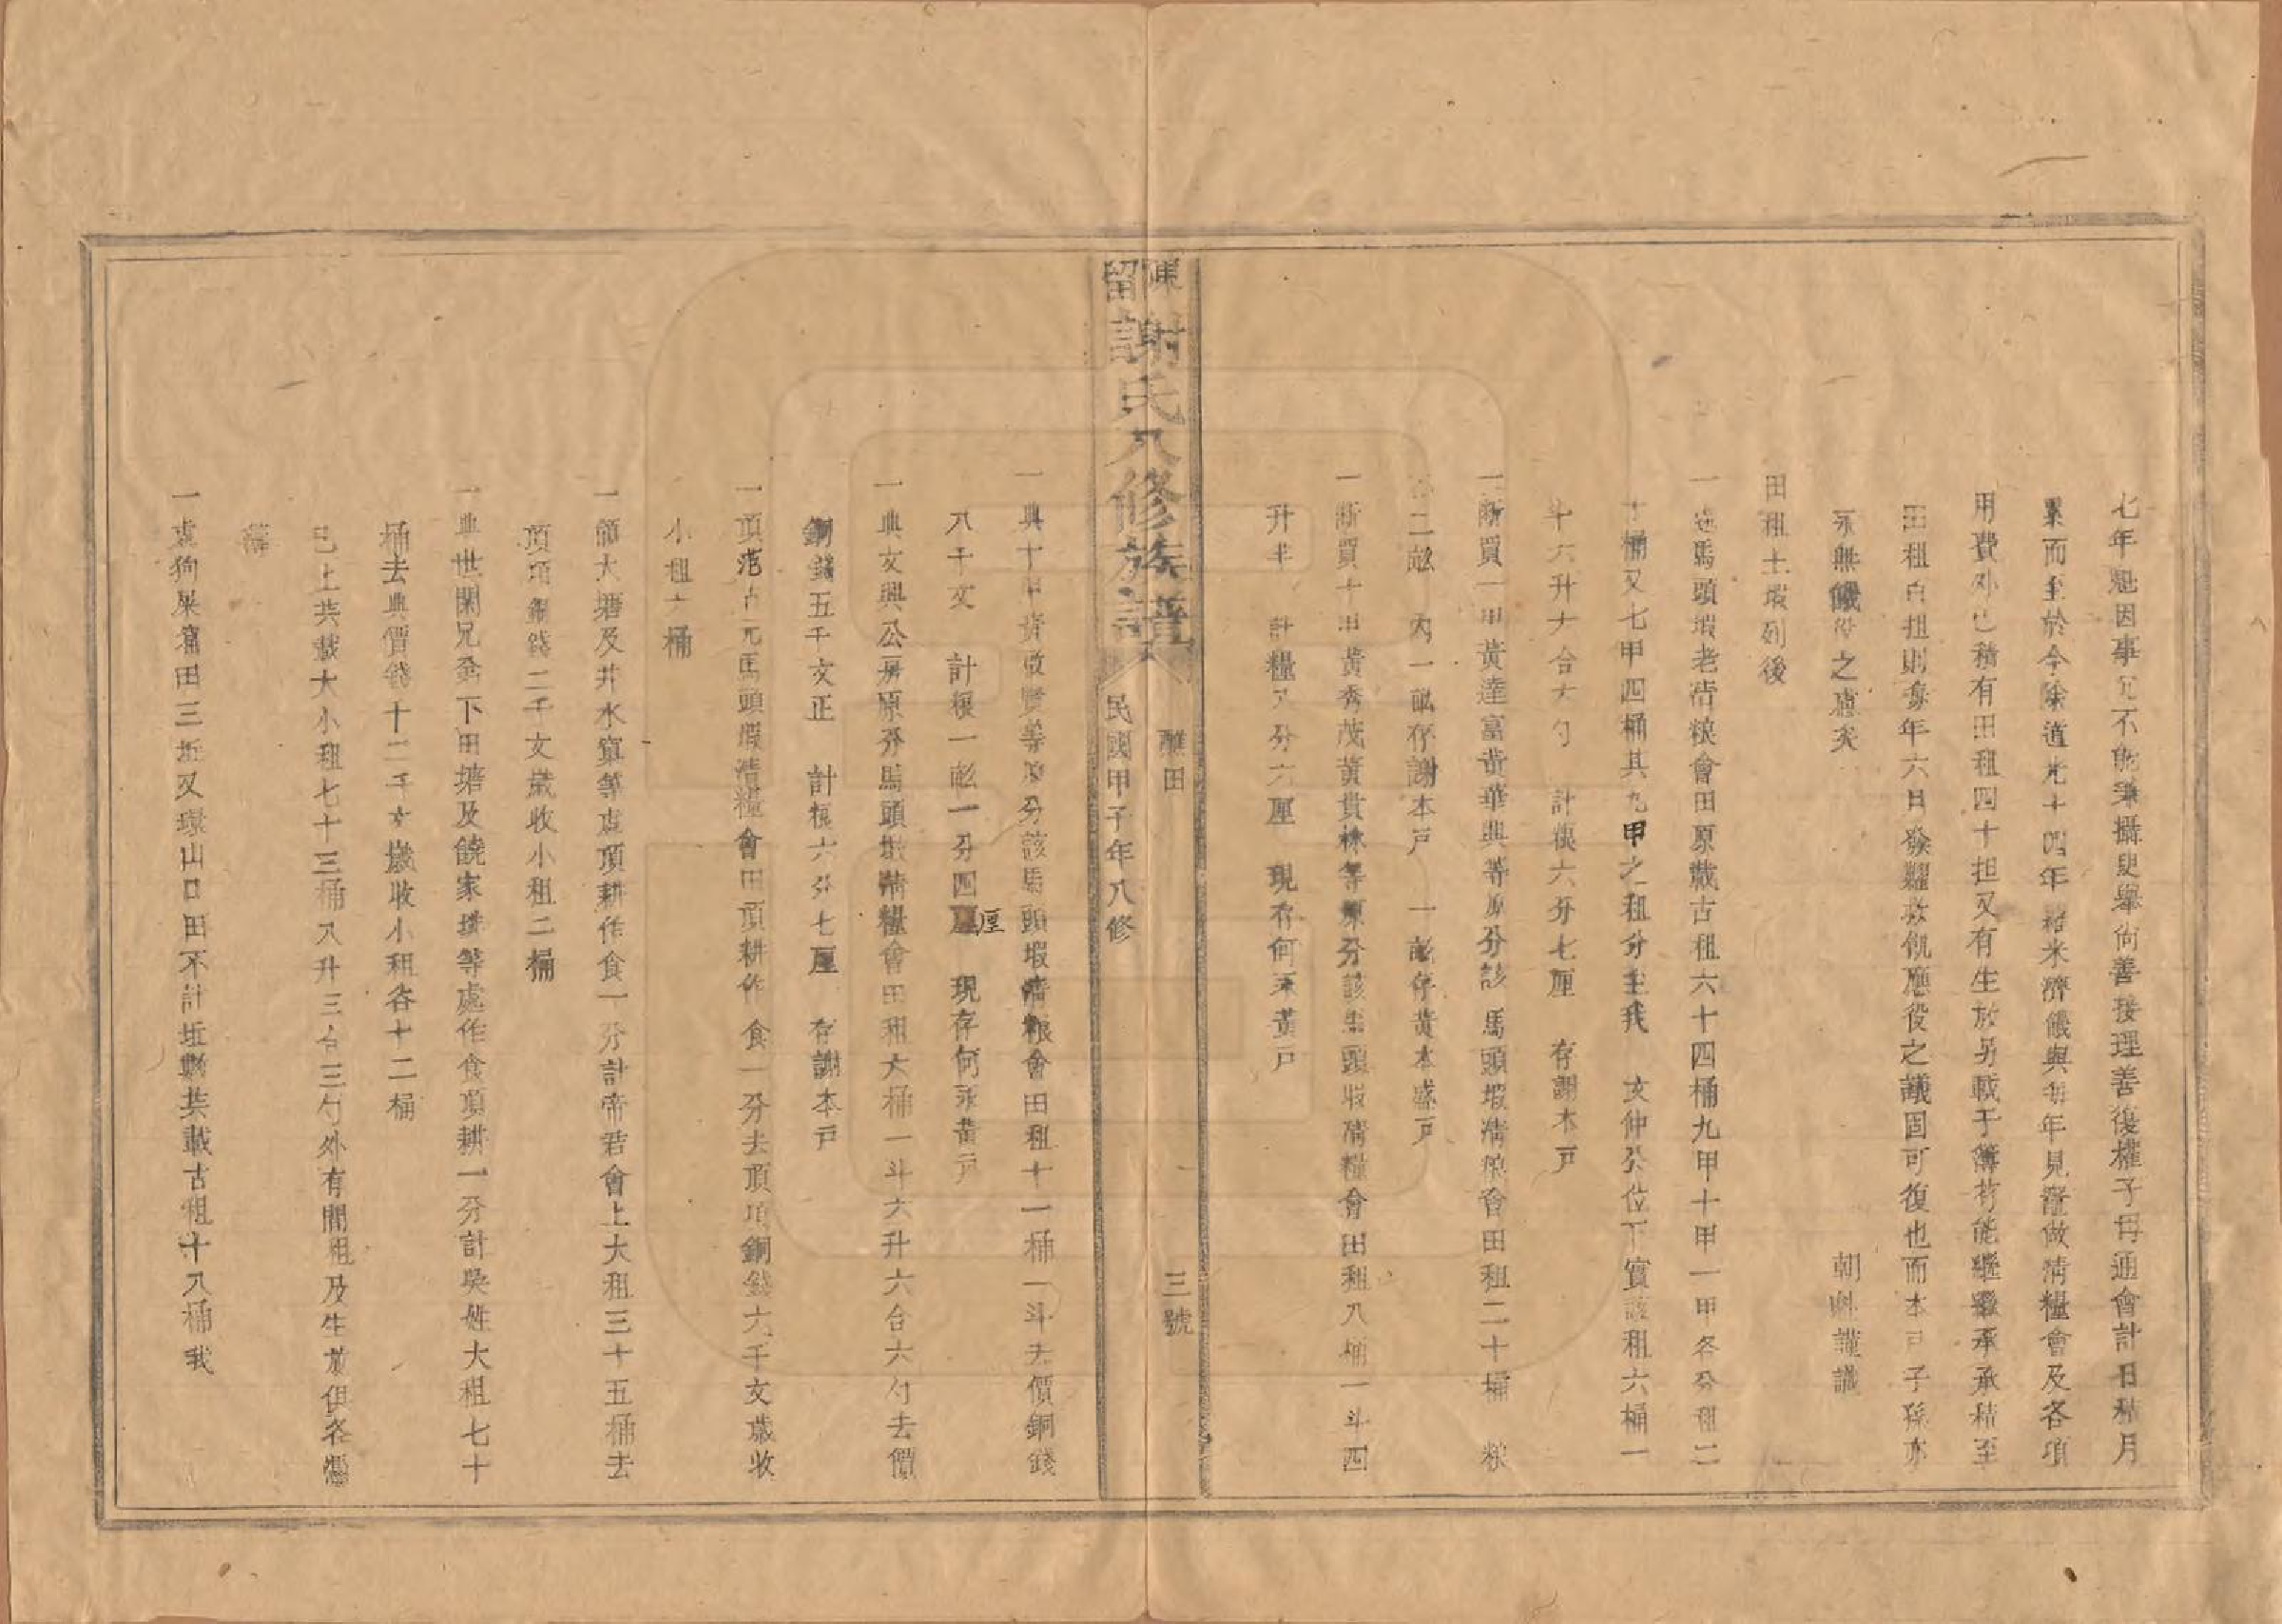 七年魁因事冗不能兼攝更舉尚善接理善復權子母通會計日積月
累而至於今除道光十四年 米濟饑與每年見 做淸糧會及各項
用費外已積有田租四十担又有生放另載于簿若能繼繼承承積至
田租百担則每年六月發糶救飢應役之議固可復也而本 子孫亦
永無饑 之慮矣 朝 謹議
田租土塅列後
一 馬頭塅老 粮會田原載古租六十四桶九甲十甲一甲各分租二
十桶又七甲四桶其九甲之租分至我 文仲公位下實該租六桶一
斗六升六合六勺 計粮六分七厘 存謝本戸
一斷買一甲黃達富黃華典等原分該馬頭塅淸粮會田租二十桶 粮
二 內一 存謝本戸 一 存黃本盛戸
一斷買十甲黃秀茂黃貴林等原分該馬頭塅淸糧會田租八桶一斗四
升半 計糧 分六厘 現存何永黃戸
陳留謝氏八修族譜 田 三號
民國甲子年八修
一典十甲黃 賢等原分該馬頭塅淸粮會田租十一桶一斗去價銅錢
八千文 計粮一 一分四厘 現存何永黃戸
一典文興公房原分馬頭塅淸糧會田租大桶一斗六升六合六勺去價
銅錢五千文正 計粮六分七厘 存謝本戸
一頂 古元馬頭塅淸糧會田頂耕作食一分去頂項銅錢六千文歲收
小租六桶
一頂大塘及井水 等處頂耕作食一分計帝君會上大租三十五桶去
頂項銅錢二千文歲收小租二桶
一典世開兄 下田塘及饒家 等處作食頂耕一分計吳姓大租七十
桶去典價錢十二千文歲收小租各十二桶
已上共載大小租七十三桶八升三合三勺外有間租及生放俱各憑
簿
一處狗 窩田三坵又 山口田不計坵數共載古租十八桶我